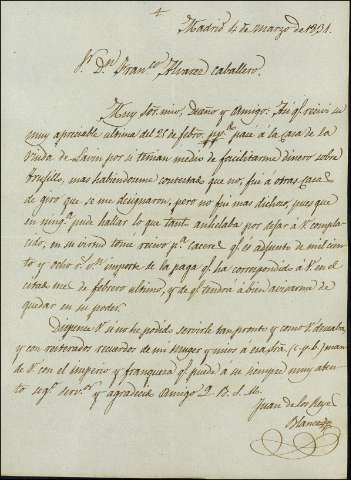 Madrid 4 de marzo de 1831.
Sr. Dn. Franco. Alvarez caballero.
Muy Sor. mio, Dueño y Amigo: Asi qe. recivi su
muy apreciable ultima del 25 de febro. pasé a la Casa de la
Viuda de Lavin por si tenian medio de facilitarme dinero sobre
Trujillo, mas habiendome contestado que no, fui á otras casas
de giro que se me designaron, pero no fui mas dichoso, pues que
en ninga. pude hallar lo que tanto anhelaba por dejar á V. compla-
cido, en su virtud tome recivo pa. Caceres qe. es adjunto de mil cien-
to y ocho rs. vn. importe de la paga qe. ha correspondido á V. en el
citado mes de febrero ultimo, y de qe. tendrá á bien avisarme de
quedar en su poder.
Dispense V. si no he podido servirle tan pronto y como V. deseaba,
y con reiterados recuerdos de mi muger y mios á esa Sra. (c. p. b.) man-
de V. con el imperio y franqueza qe. puede a su siempre muy aten-
to sego. servor. y agradecido Amigo Q. B. S. M.
Juan de los Reyes
Blanco